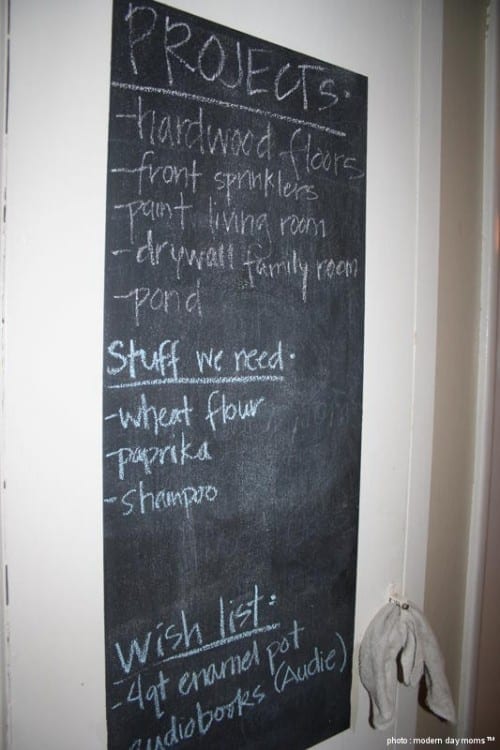 PROJECTS:
-hardwood floors
-front sprinklers
-paint living room
-drywall family room
-pond
Stuff we need:
-wheat flour
-paprika
-shampoo
Wish list:
-4qt enamel pot
audiobooks (Audie)
photo : modern day moms ™